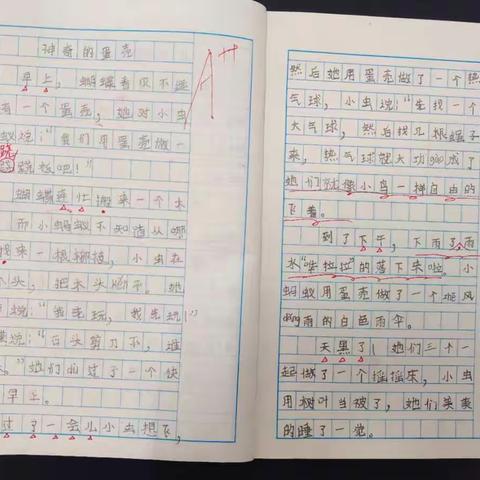 神奇的蛋壳
早上，蝴蝶看
有一个蛋壳，她对小虫
蚂蚁说：“我们用蛋壳做一
跷
跷板吧！”
蝴蝶连忙搬来一个木
而小蚂蚁不知道从哪
来一根树枝，小虫在
个头，把木头
说：“我先玩，我先玩！”
说：“石头剪刀布，谁
。”她们du过了一个快
早上。
过了一会儿小虫想飞，
A++
然后她用蛋壳做了一个热
气球，小虫说：“先找一个
大气球，然后找几根绳子
来，热气球就大功gào成了
她们就像小鸟一样自由的
飞着。
到了下午，下雨了，雨
水“哗拉拉”的落下来啦。小
蚂蚁用蛋壳做了一个
dǎng雨的白色雨伞。
天黑了，她们三个一
起做了一个摇摇床，小虫
用树叶当被子，她们美美
的睡了一觉。